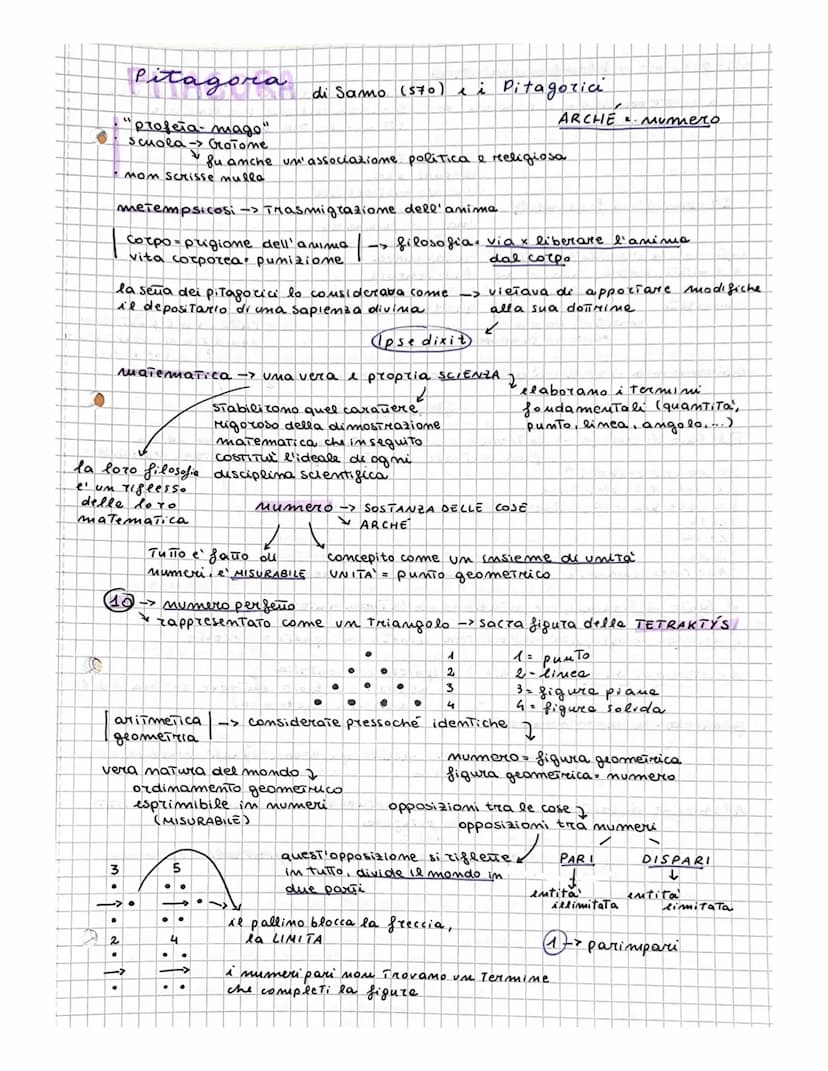 Pitagora di Samo (570) e i Pitagorici
ARCHÉ = numero
· "profeta-mago"
· scuola -> Crotone
↘ fu anche un'associazione politica e religiosa
· non scrisse nulla
metempsicosi -> trasmigrazione dell'anima
corpo = prigione dell'anima | -> filosofia = via x liberare l'anima
vita corporea = punizione dal corpo
la setta dei pitagorici lo considerava come -> vietava di apportare modifiche
il depositario di una sapienza divina alla sua dottrina
Ipse dixit
matematica -> una vera e propria SCIENZA
elaborano i termini
fondamentali (quantità,
punto, linea, angolo, ...)
stabilirono quel carattere
rigoroso della dimostrazione
matematica che in seguito
costituì l'ideale di ogni
disciplina scientifica
la loro filosofia
e' un riflesso
della loro
matematica
numero -> SOSTANZA DELLE COSE
↘ ARCHÉ
Tutto e' fatto di
numeri, e' MISURABILE
concepito come un insieme di unità
UNITA' = punto geometrico
10 -> numero perfetto
↘ rappresentato come un triangolo -> sacra figura della TETRAKTÝS
1 1 = punto
2 2 = linea
3 3 = figura piana
4 4 = figura solida
aritmetica | -> considerate pressoché identiche
geometria
numero = figura geometrica
figura geometrica = numero
vera natura del mondo
ordinamento geometrico
esprimibile in numeri
(MISURABILE)
opposizioni tra le cose
opposizioni tra numeri
PARI DISPARI
entità illimitata entità limitata
quest'opposizione si riflette
in tutto, divide il mondo in
due parti
3 5
il pallino blocca la freccia,
la LIMITA
1 -> parimpari
2 4
i numeri pari non trovano un termine
che completi la figura